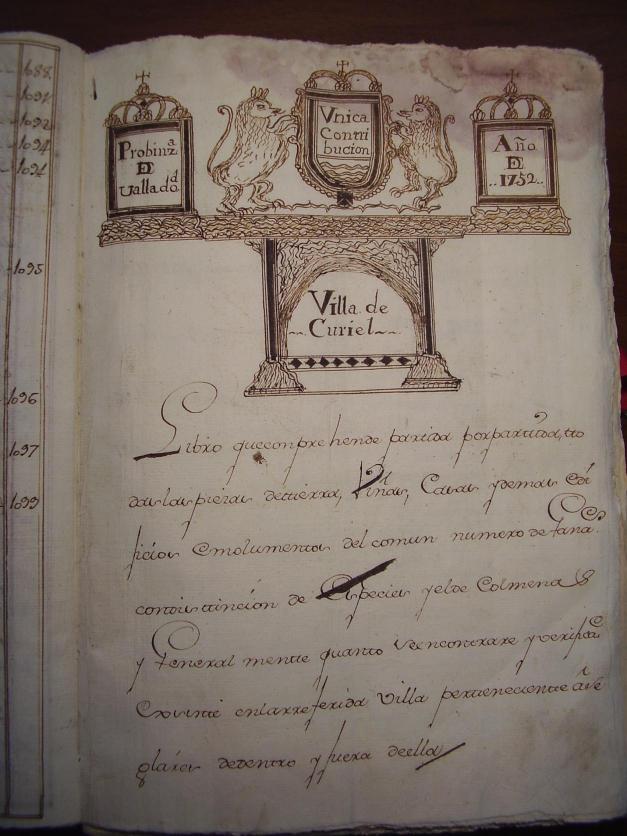 1688
1691
1692
1694
1694
1695
1696
1697
1699
Probinz.a
DE
Vallad.od
Vnica
Contri
bucion
Año
DE
..1752..
Villa de
Curiel
Libro queconprehende partida porpartida, to
das las piezas detierra, Viñas, Casas ydemas edi
ficios Emolumentos del comun numero de Gana.s
condistincion de Especies yelde Colmenas
y General mente quanto seencontrare yverifica
Existente enlarreferida Villa perteneciente
glares dedentro y fuera deella